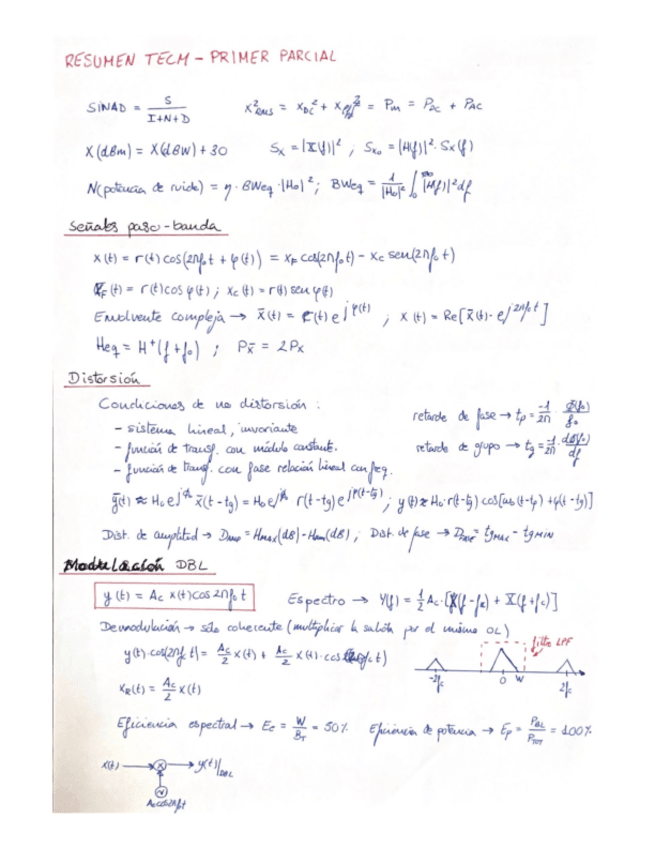 RESUMEN TECM - PRIMER PARCIAL
SINAD = S / (I+N+D)    X²RMS = X_DC² + X_eff² = Pm = P_DC + P_AC
X(dBm) = X(dBW) + 30    Sx = |X(f)|² ; Sxo = |H(f)|² · Sx(f)
N(potencia de ruido) = η · BWeq · |Ho|² ; BWeq = 1/|Ho|² ∫₀^∞ |H(f)|² df
Señales paso-banda
x(t) = r(t) cos(2πf₀t + φ(t)) = x_F cos(2πf₀t) - x_C sen(2πf₀t)
x_F(t) = r(t) cos φ(t) ; x_C(t) = r(t) sen φ(t)
Envolvente compleja → x̄(t) = r(t) e^{jφ(t)} ; x(t) = Re[x̄(t) · e^{j2πf₀t}]
Heq = H⁺(f+f₀) ; Px̄ = 2Px
Distorsión
Condiciones de no distorsión :
- sistema lineal, invariante    retardo de fase → tp = -1/2π · Φ(f₀)/f₀
- función de transf. con módulo constante.    retardo de grupo → tg = -1/2π · dΦ(f₀)/df
- función de transf. con fase relación lineal con freq.
ȳ(t) ≈ Ho e^{jΦ₀} x̄(t-tg) = Ho e^{jΦ₀} r(t-tg) e^{jφ(t-tg)} ; y(t) ≈ Ho · r(t-tg) cos[ω₀(t-tp) + φ(t-tg)]
Dist. de amplitud → Damp = Hmax(dB) - Hmin(dB) ; Dist. de fase → Dfase = tgMAX - tgMIN
Modulación DBL
y(t) = Ac x(t) cos 2πf₀t    Espectro → Y(f) = 1/2 Ac · [X(f-fc) + X(f+fc)]
Demodulación → sólo coherente (multiplicar la salida por el mismo OL)    filtro LPF
y(t) · cos(2πfc t) = Ac/2 x(t) + Ac/2 x(t) · cos( fc t)
-2fc    0    W    2fc
x_R(t) = Ac/2 x(t)
Eficiencia espectral → Ec = W/B_T = 50%    Eficiencia de potencia → Ep = P_BL/P_TOT = 100%
x(t) → ⊗ → y(t)|DBL
Ac cos 2πf₀t